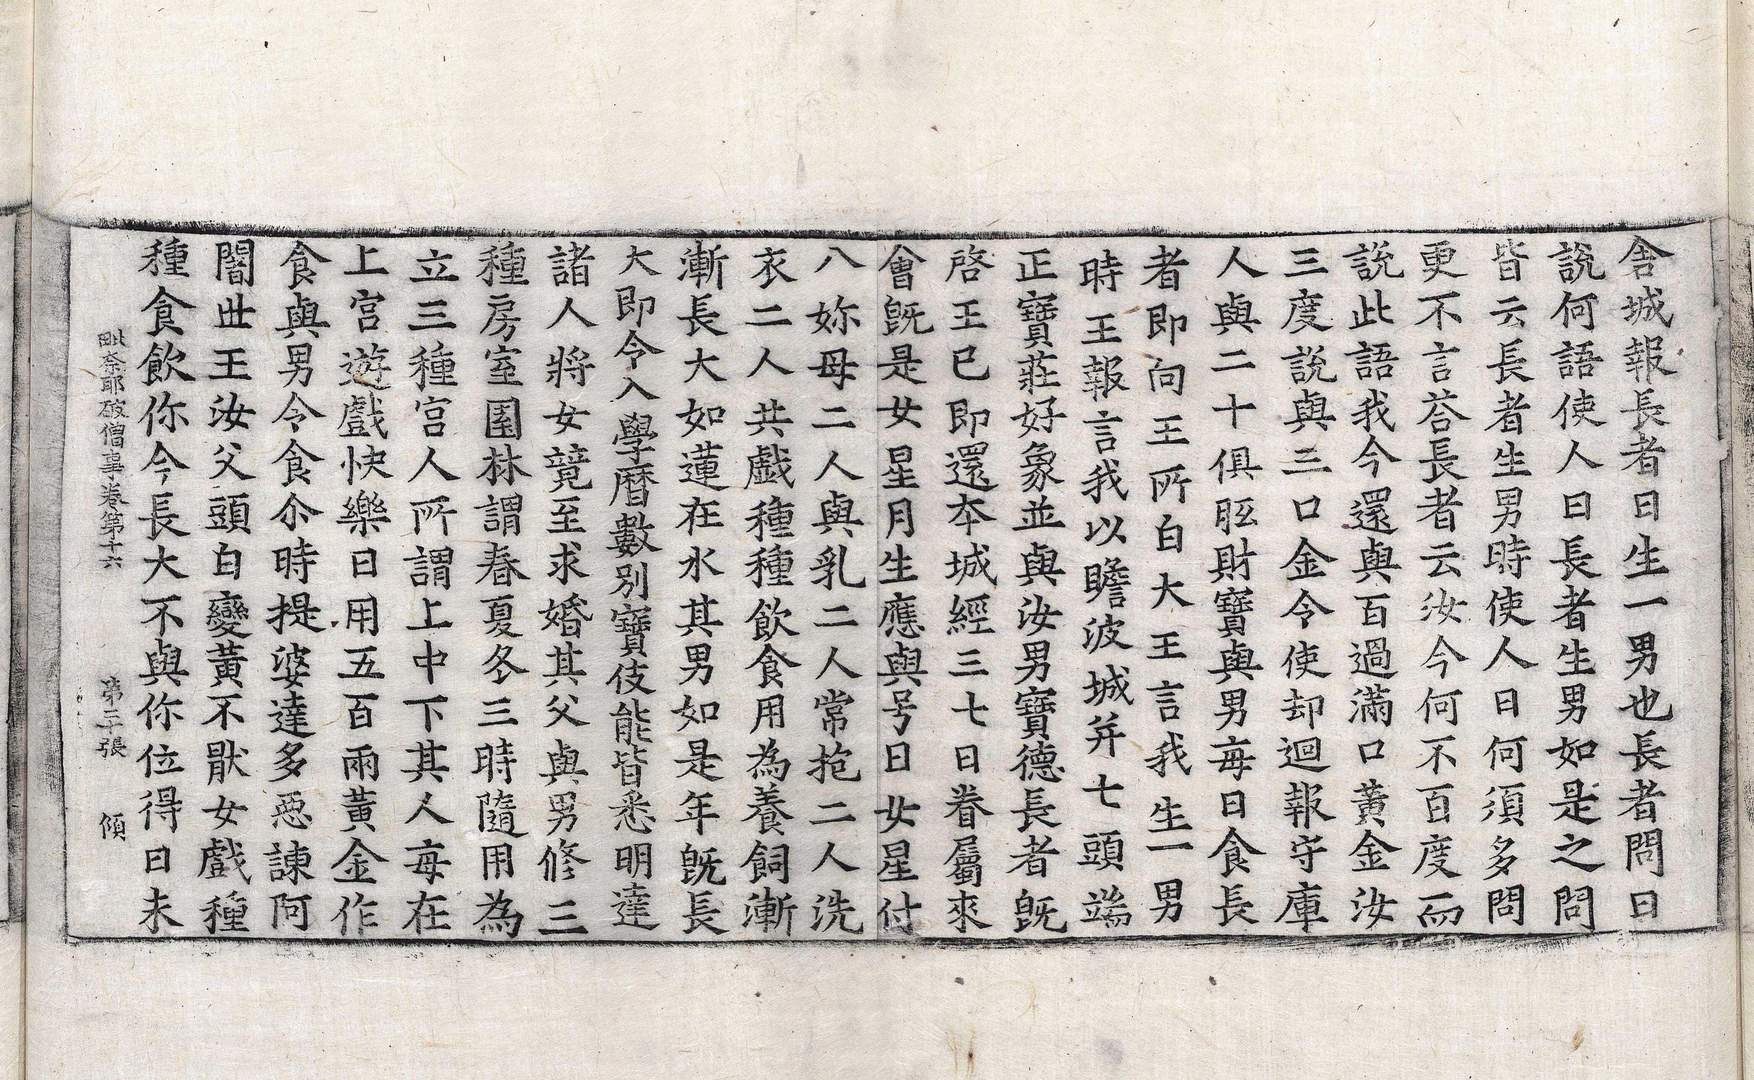 舍城報長者曰生一男也長者問曰
說何語使人曰長者生男如是之問
皆云長者生男時使人曰何須多問
更不言荅長者云汝今何不百度而
說此語我今還與百過滿口黃金汝
三度說與三口金令使却迴報守庫
人與二十俱胝財寶與男每日食長
者即向王所白大王言我生一男
時王報言我以瞻波城并七頭端
正寶莊好象並與汝男寶德長者旣
啓王已即還本城經三七日眷屬來
會旣是女星月生應與号曰女星付
八妳母二人與乳二人常抱二人洗
衣二人共戲種種飲食用為養飼漸
漸長大如蓮在水其男如是年旣長
大即令入學曆數別寶伎能皆悉明達
諸人將女競至求婚其父與男修三
種房室園林謂春夏冬三時隨用為
立三種宮人所謂上中下其人每在
上宮遊戲快樂日用五百兩黃金作
食與男令食尒時提婆達多惡諫阿
闍世王汝父頭白變黃不猒女戲種
種食飲你今長大不與你位得曰未
毗奈耶破僧事卷第十六 第二十張 傾